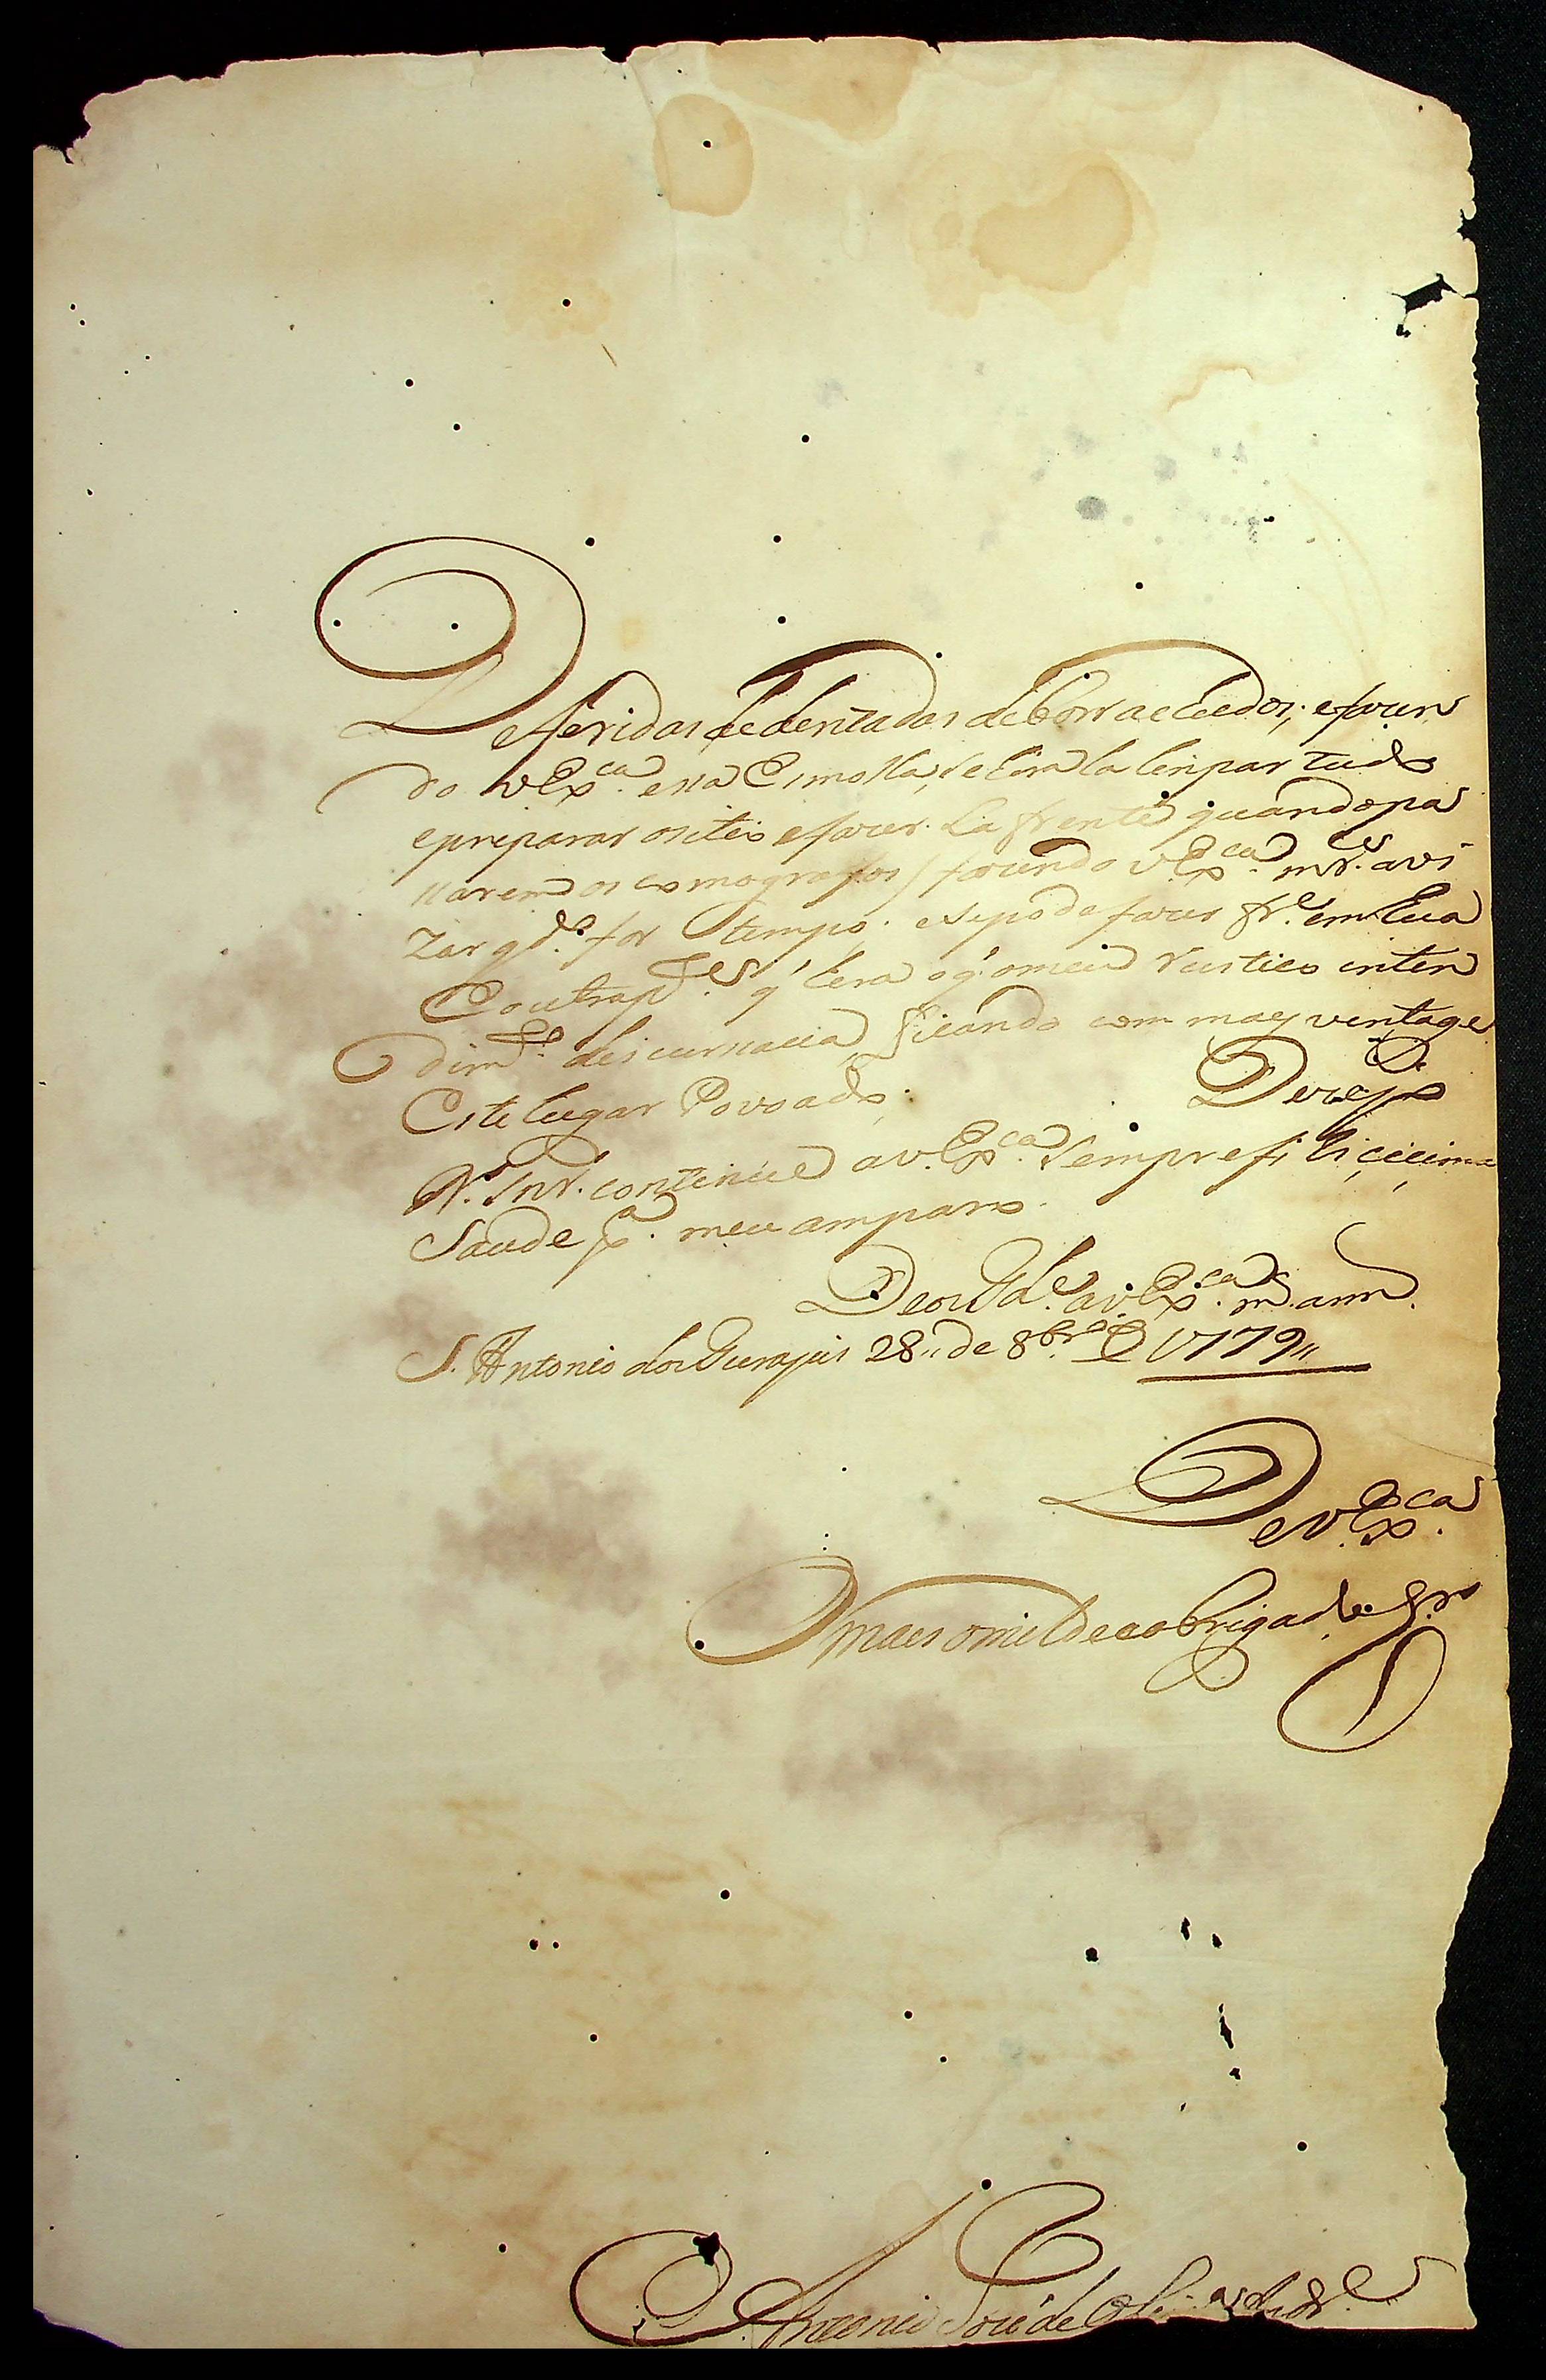 De feridas de dentadas de borrachudos; e fazen
do v Ex.ca essa Esmolla, se hira la linpar tudo
e preparar o sitio e fazer la frente quando pa
ssarem os cosmografos / fazendo v Ex.ca m.ce avi
zar q.do for tempo; e se pode fazer fr.e em hua
e outra p.tes q' hera o q' o meu Rustico inten
dim.to descursava, ficando com may ventage
Este lugar Povoado.
D.s
N. Snr. continue a v. Ex.ca sempre fi li cicima
Saude p.a meu amparo.
Deos G.de a v. Ex.ca m.s ann.
S. Antonio dos Gurapis 28,, de 8br.o D 1779,,
De v. Ex.ca
O mais omilde e obrigado Sr.o
Antonio Joze de